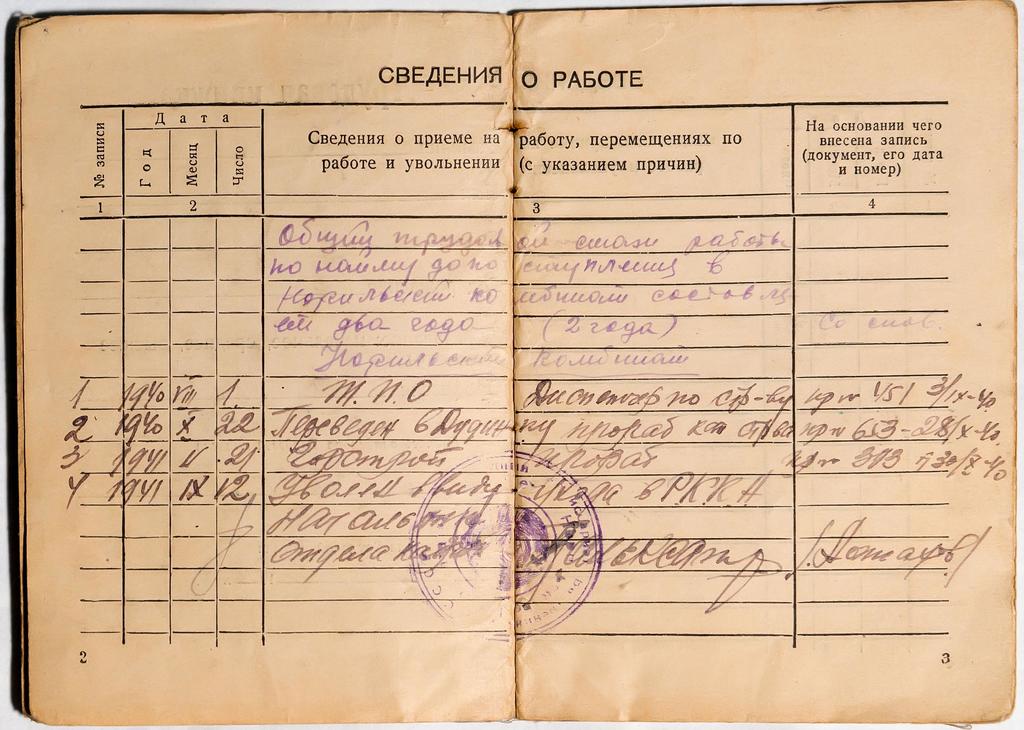 СВЕДЕНИЯ О РАБОТЕ
№ записи
Дата
Год
Месяц
Число
Сведения о приеме на работу, перемещениях по
работе и увольнении (с указанием причин)
На основании чего
внесена запись
(документ, его дата
и номер)
1 2 3 4
Общий трудовой стаж работы
по найму до поступления в
Норильский комбинат составля
ет два года (2 года) Со слов.
Норильский комбинат
1 1940 VIII 1. Т.П.О Диспетчер по стр-ву пр № 451 3/IX-40
2 1940 X 22 Переведен в Дудинку прораб кап стр-ва пр № 653-28/X-40
3 1941 21 Горстрой прораб пр № 303
4 1941 IX 12 Уволен ввиду ухода в РККА
Начальник
отдела кадров
2
3